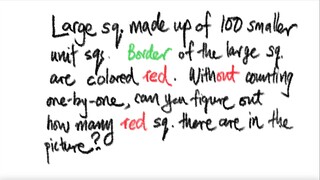 Large sq. made up of 100 smaller
unit sqs. Border of the large sq.
are colored red. Without counting
one-by-one, can you figure out
how many red sq. there are in the
picture?